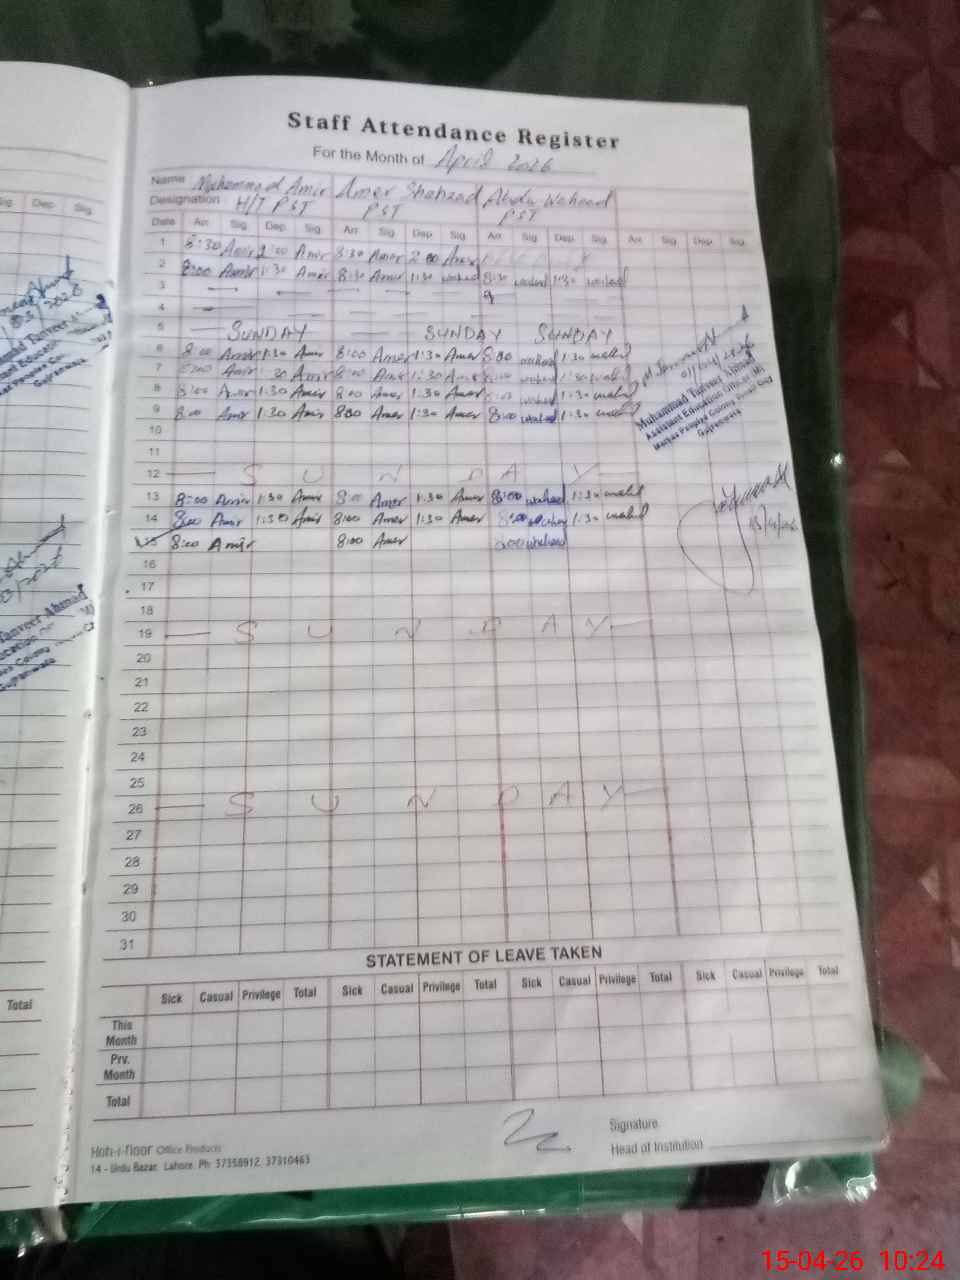 Staff Attendance Register
For the Month of April 2026
Name Muhammad Amir Amer Shahzad Abdul Waheed
Designation H/T PST PST PST
Date Arr. Sig. Dep. Sig. Arr. Sig. Dep. Sig. Arr. Sig. Dep. Sig. Arr. Sig. Dep. Sig.
1 8:30 Amir 2:00 Amir 8:30 Amer 2:00 Amer
2 8:00 Amir 1:30 Amir 8:30 Amer 1:30 waheed 8:30 waheed 1:30 waheed
3
4
5 SUNDAY SUNDAY SUNDAY
6 8:00 Amir 1:30 Amir 8:00 Amer 1:30 Amer 8:00 waheed 1:30 waheed
7 8:00 Amir 1:30 Amir 8:00 Amer 1:30 Amer 8:00 waheed 1:30 waheed
8 8:00 Amir 1:30 Amir 8:00 Amer 1:30 Amer 8:00 waheed 1:30 waheed
9 8:00 Amir 1:30 Amir 8:00 Amer 1:30 Amer 8:00 waheed 1:30 waheed
Muhammad Tanveer Ahmad
Assistant Education Officer (M)
10
11
12 SUNDAY
13 8:00 Amir 1:30 Amir 8:00 Amer 1:30 Amer 8:00 waheed 1:30 waheed
14 8:00 Amir 1:30 Amir 8:00 Amer 1:30 Amer 8:00 waheed 1:30 waheed
15 8:00 Amir 8:00 Amer 8:00 waheed
16
17
18
19 SUNDAY
20
21
22
23
24
25
26 SUNDAY
27
28
29
30
31
STATEMENT OF LEAVE TAKEN
Sick Casual Privilege Total Sick Casual Privilege Total Sick Casual Privilege Total Sick Casual Privilege Total
This Month
Prv. Month
Total
Signature
Head of Institution
Koh-i-noor Office Products
14 - Urdu Bazar, Lahore. Ph: 37358912, 37310463
Sig. Dep. Sig.
Total
15-04-26 10:24